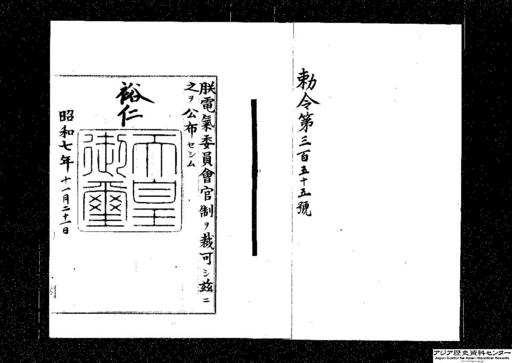 勅令第三百五十五號
朕電氣委員會官制ヲ裁可シ茲ニ
之ヲ公布セシム
裕仁
天皇
御璽
昭和七年十一月二十一日
アジア歴史資料センター
Japan Center for Asian Historical Records